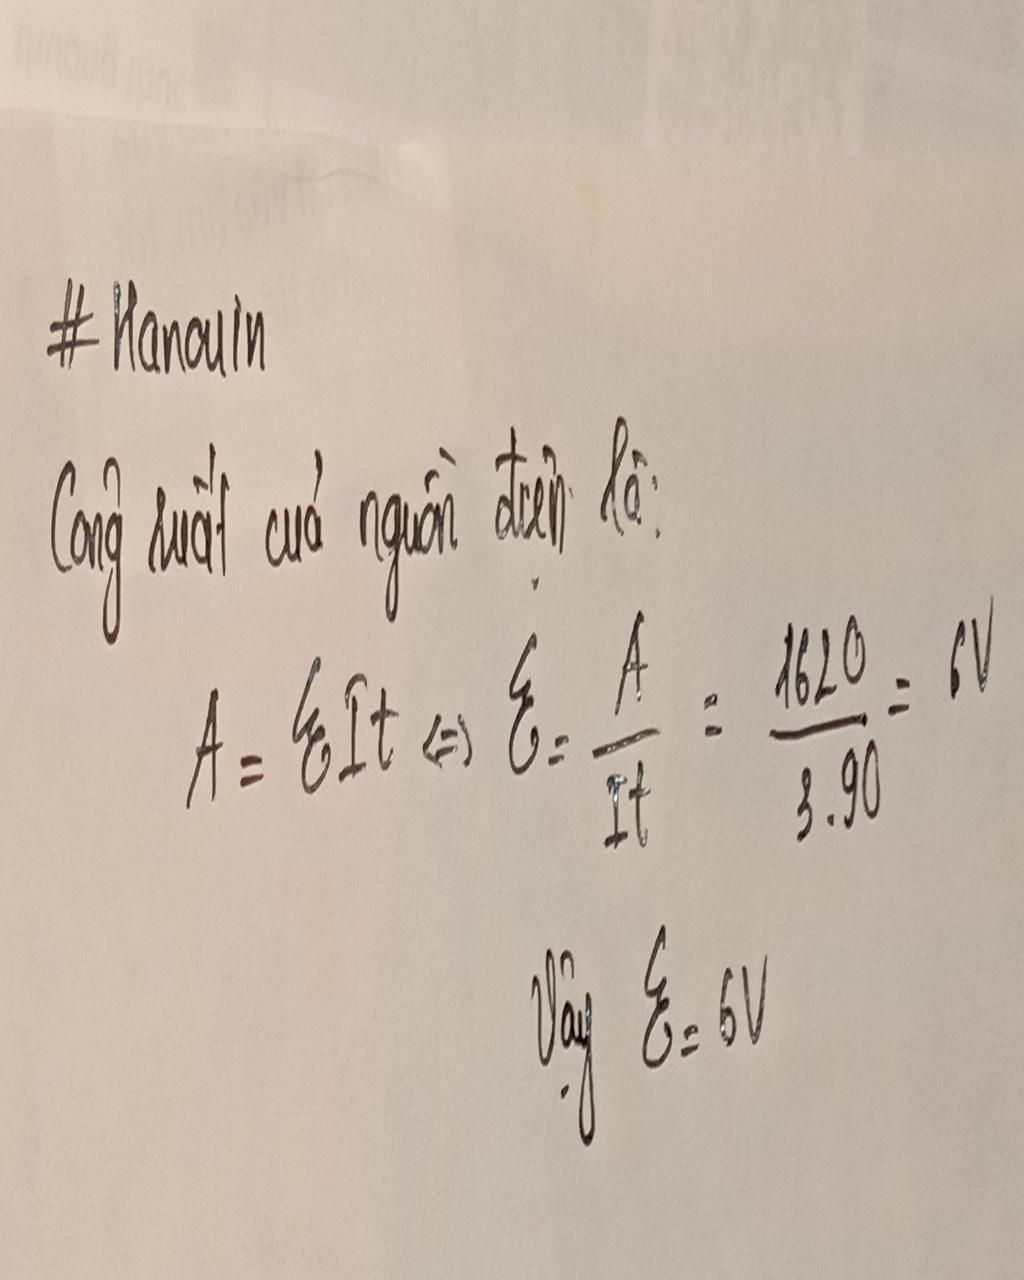 # Hanouin
Công suất của nguồn điện là:
A = ξIt <=> ξ = A/It = 1620/3.90 = 6V
Vậy ξ = 6V